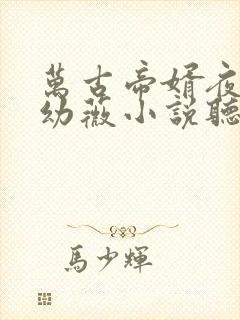 萬古帝婿夜
幼薇小說聽
馬少輝